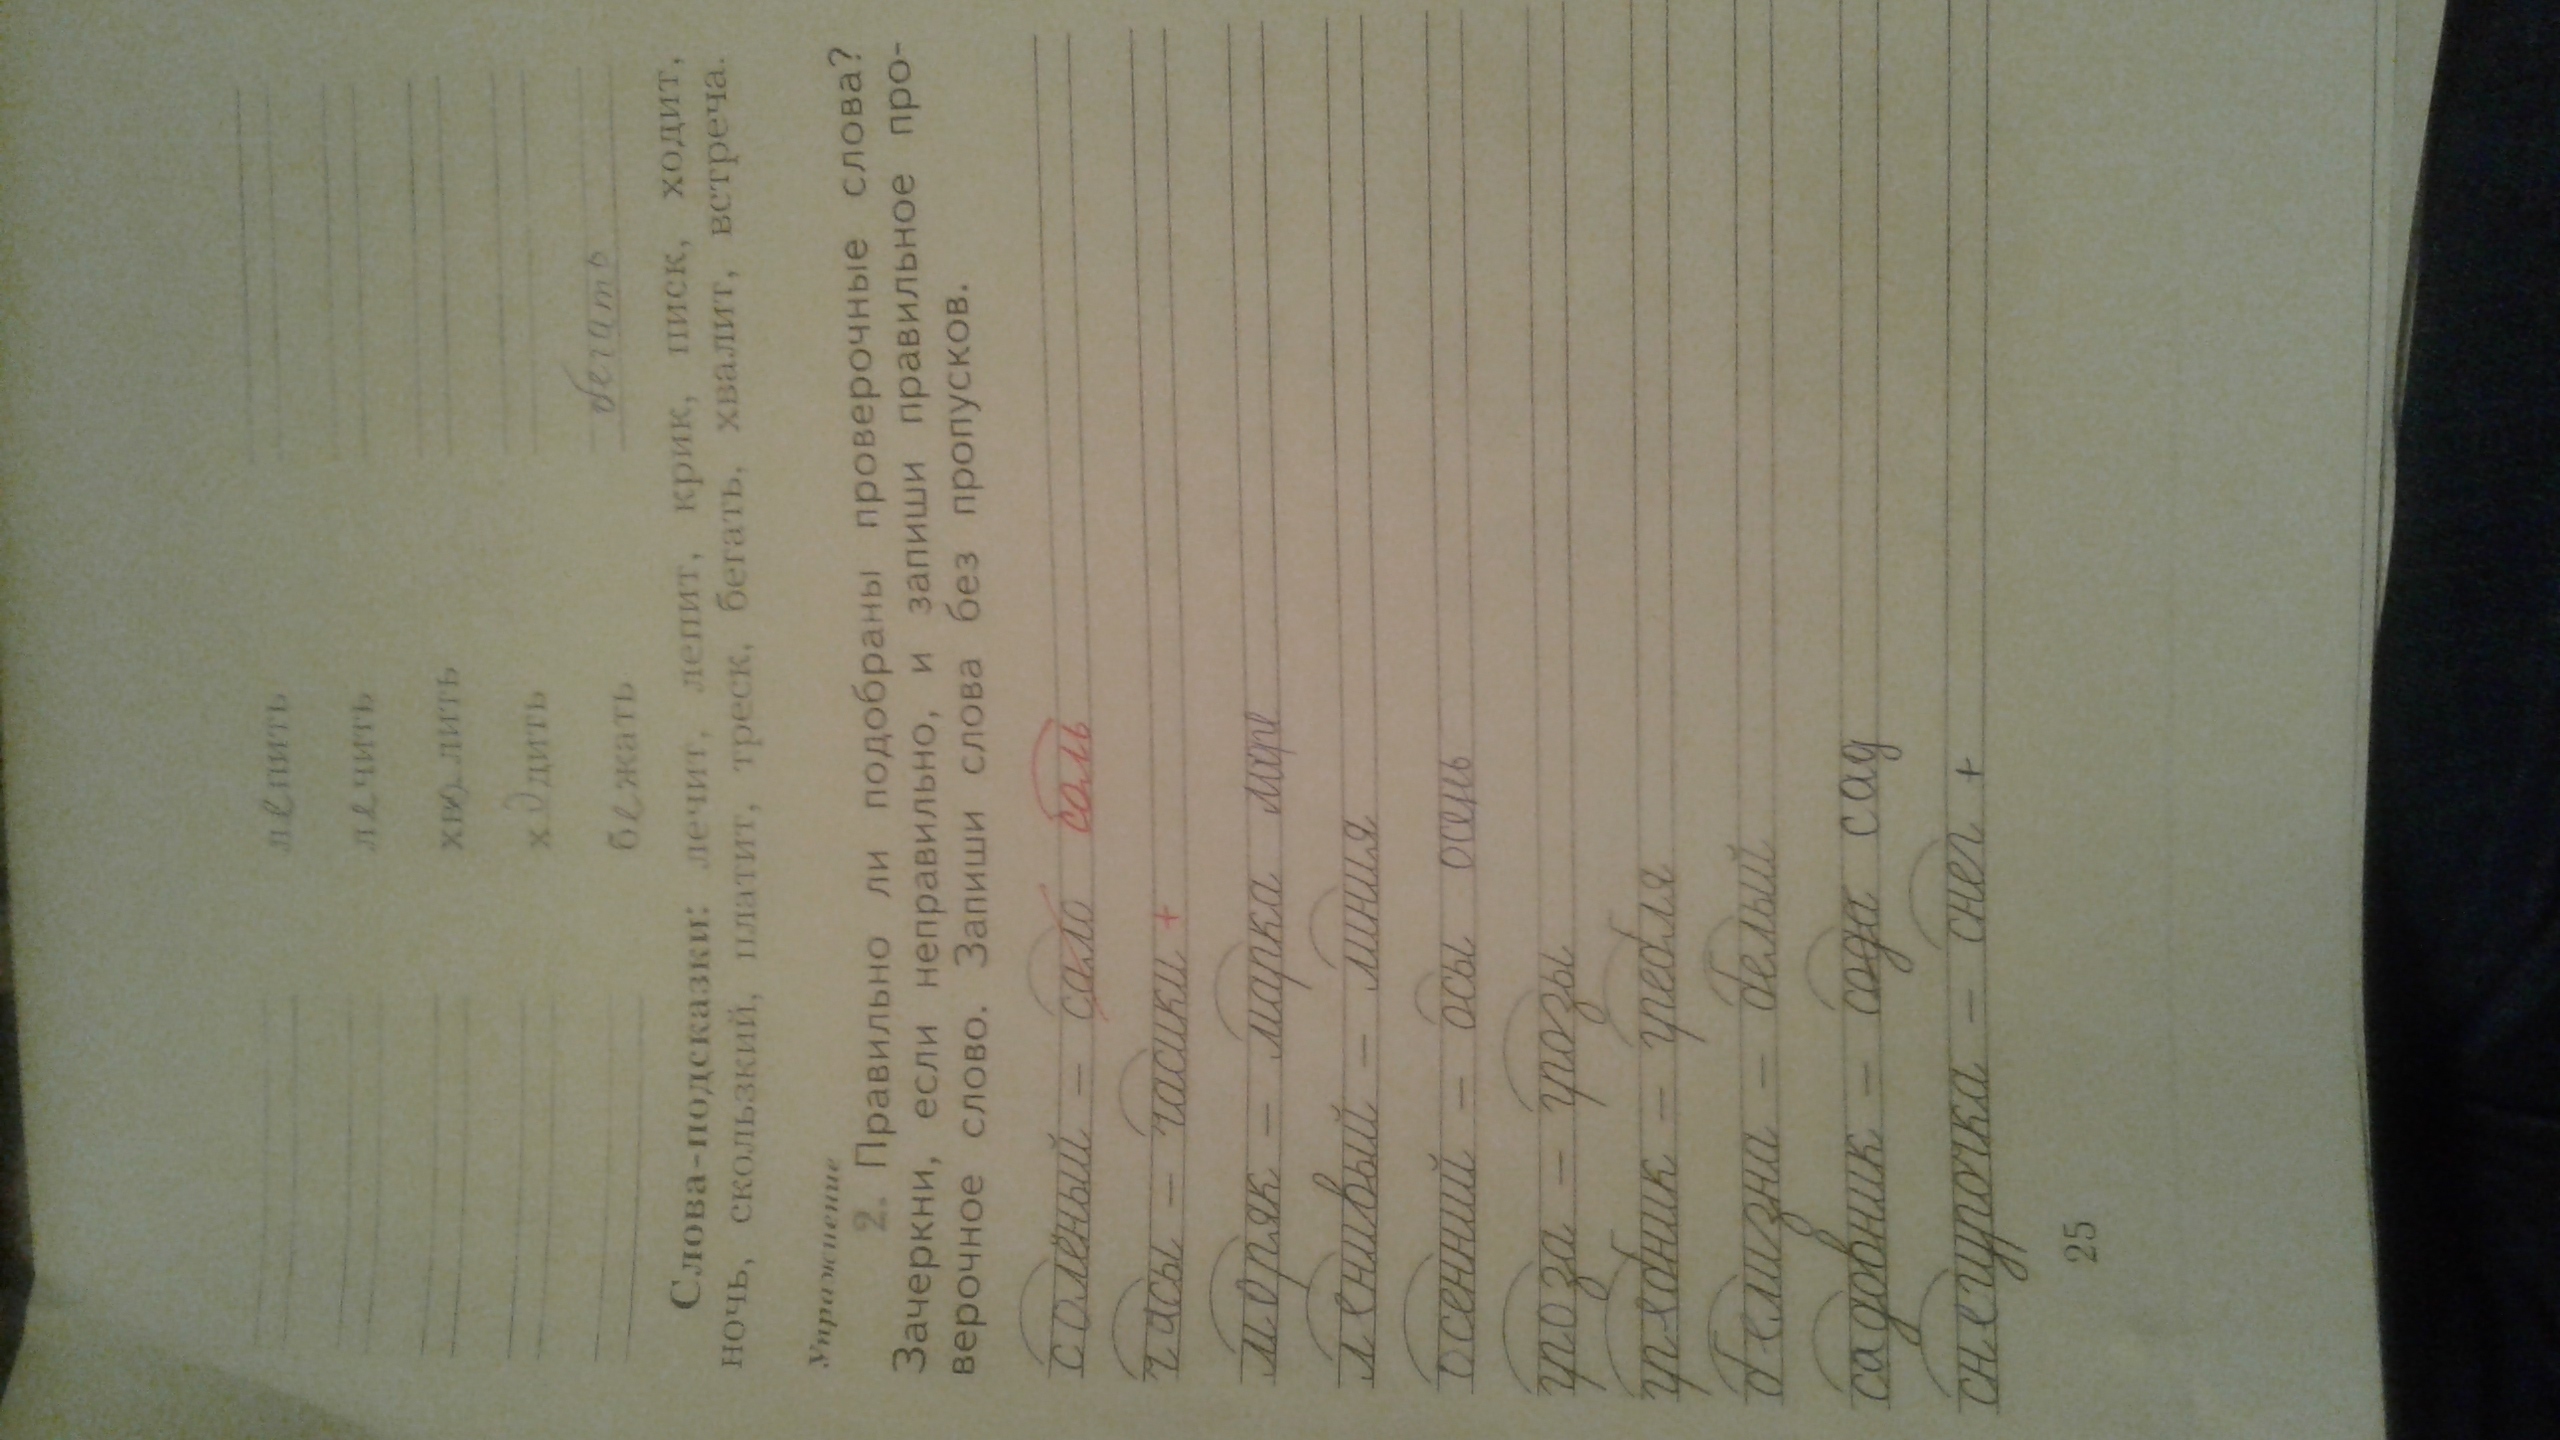 лепить
лечить
хвалить
ходить
бежать бегать
Слова-подсказки: лечит, лепит, крик, писк, ходит,
ночь, скользкий, платит, треск, бегать, хвалит, встреча.
Упражнение
2. Правильно ли подобраны проверочные слова?
Зачеркни, если неправильно, и запиши правильное про-
верочное слово. Запиши слова без пропусков.
солёный – сало соль
часы – часики +
– марка
ленивый – линия
осенний – осы осень
гроза – грозы
– гребля
белизна – белый
садовник – сода сад
снегурочка – снег +
25